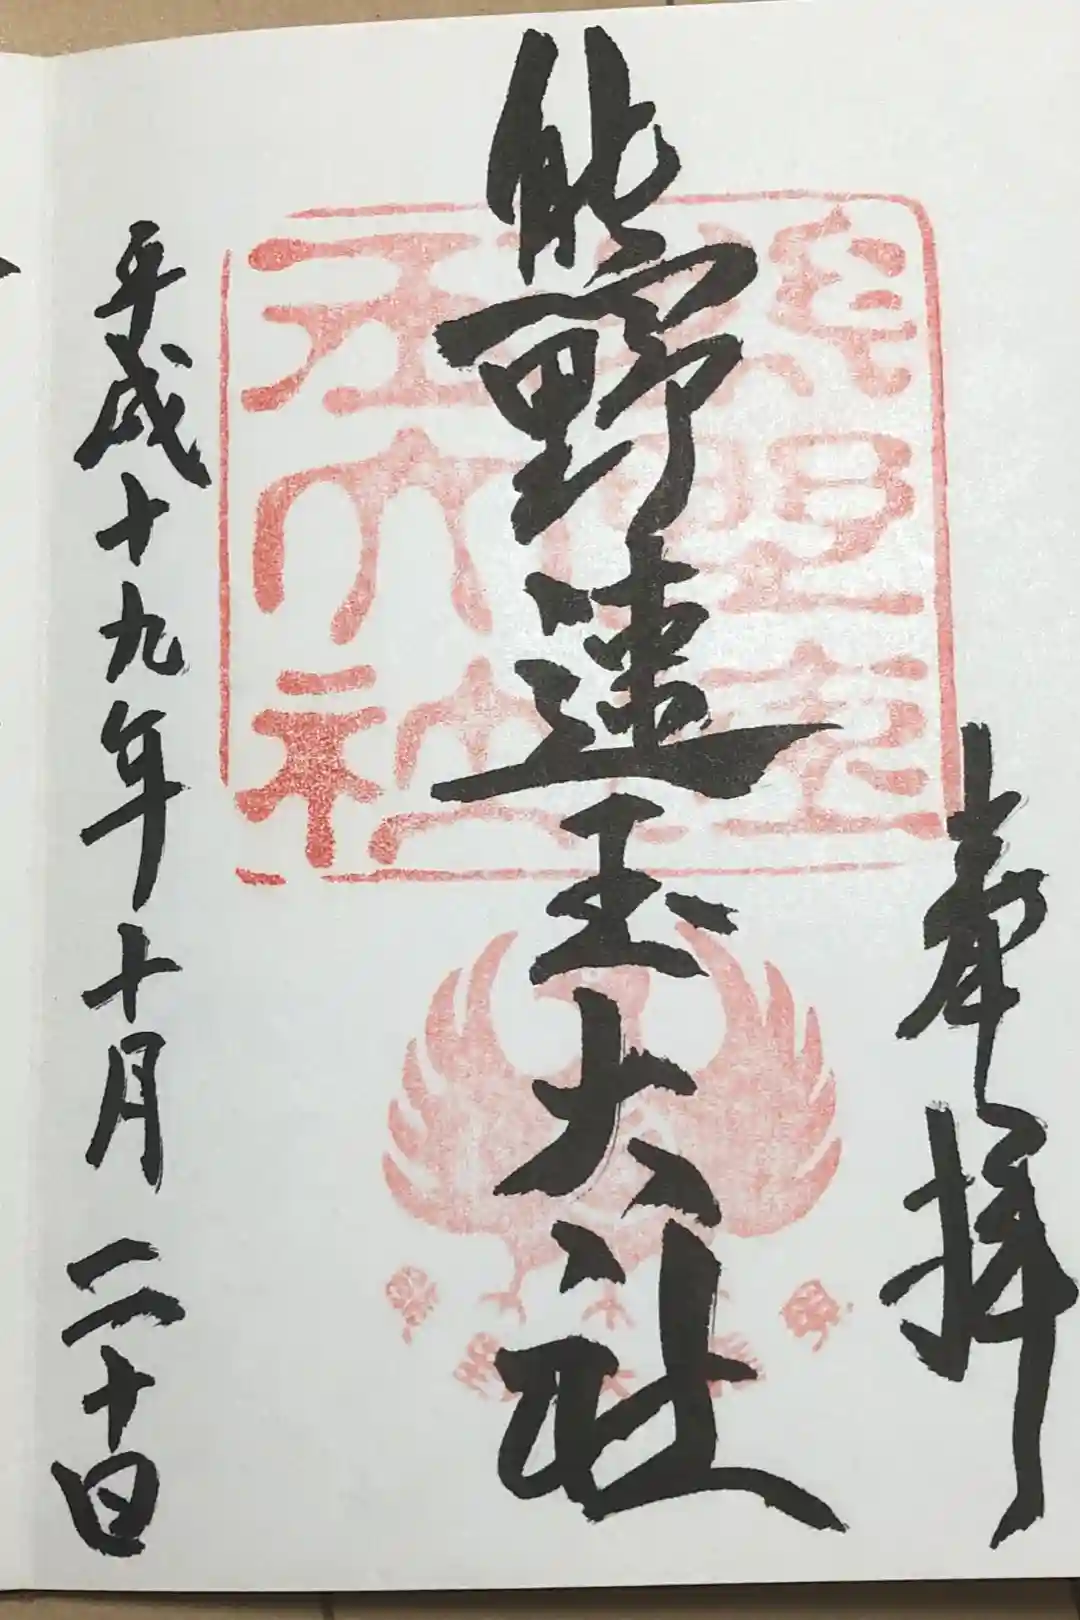 奉拝
熊野速玉大社
平成十九年十月二十日
熊野速玉大社